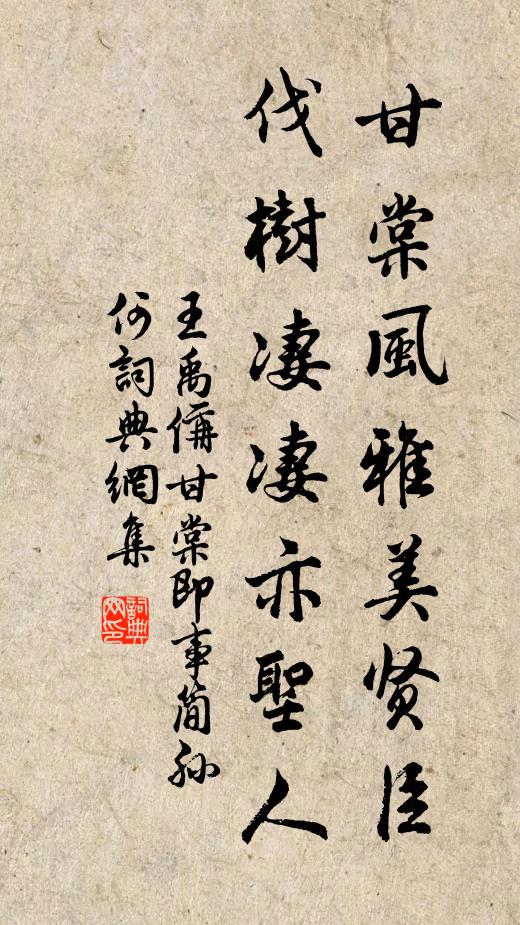 甘棠風雅美贤臣
伐樹凄凄亦聖人
王禹偁甘棠即事简孙
何詞典網集
詞典网印